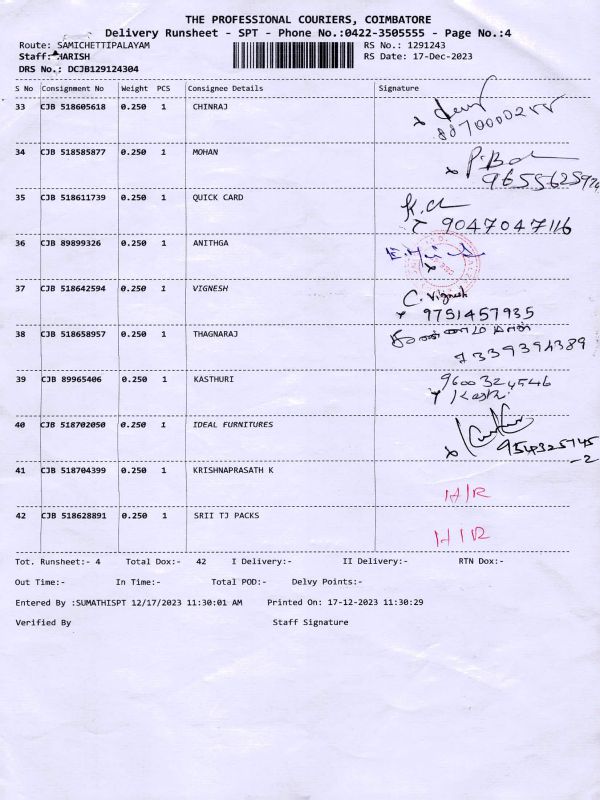 THE PROFESSIONAL COURIERS, COIMBATORE
Delivery Runsheet - SPT - Phone No.:0422-3505555 - Page No.:4
Route: SAMICHETTIPALAYAM RS No.: 1291243
Staff: HARISH RS Date: 17-Dec-2023
DRS No.: DCJB129124304
S No Consignment No Weight PCS Consignee Details Signature
33 CJB 518605618 0.250 1 CHINRAJ
34 CJB 518585877 0.250 1 MOHAN
35 CJB 518611739 0.250 1 QUICK CARD
9047047116
36 CJB 89899326 0.250 1 ANITHGA
37 CJB 518642594 0.250 1 VIGNESH
C. Vignesh
9751457935
38 CJB 518658957 0.250 1 THAGNARAJ
7339394389
39 CJB 89965406 0.250 1 KASTHURI
40 CJB 518702050 0.250 1 IDEAL FURNITURES
41 CJB 518704399 0.250 1 KRISHNAPRASATH K
H/R
42 CJB 518628891 0.250 1 SRII TJ PACKS
H/R
Tot. Runsheet:- 4 Total Dox:- 42 I Delivery:- II Delivery:- RTN Dox:-
Out Time:- In Time:- Total POD:- Delvy Points:-
Entered By :SUMATHISPT 12/17/2023 11:30:01 AM Printed On: 17-12-2023 11:30:29
Verified By Staff Signature